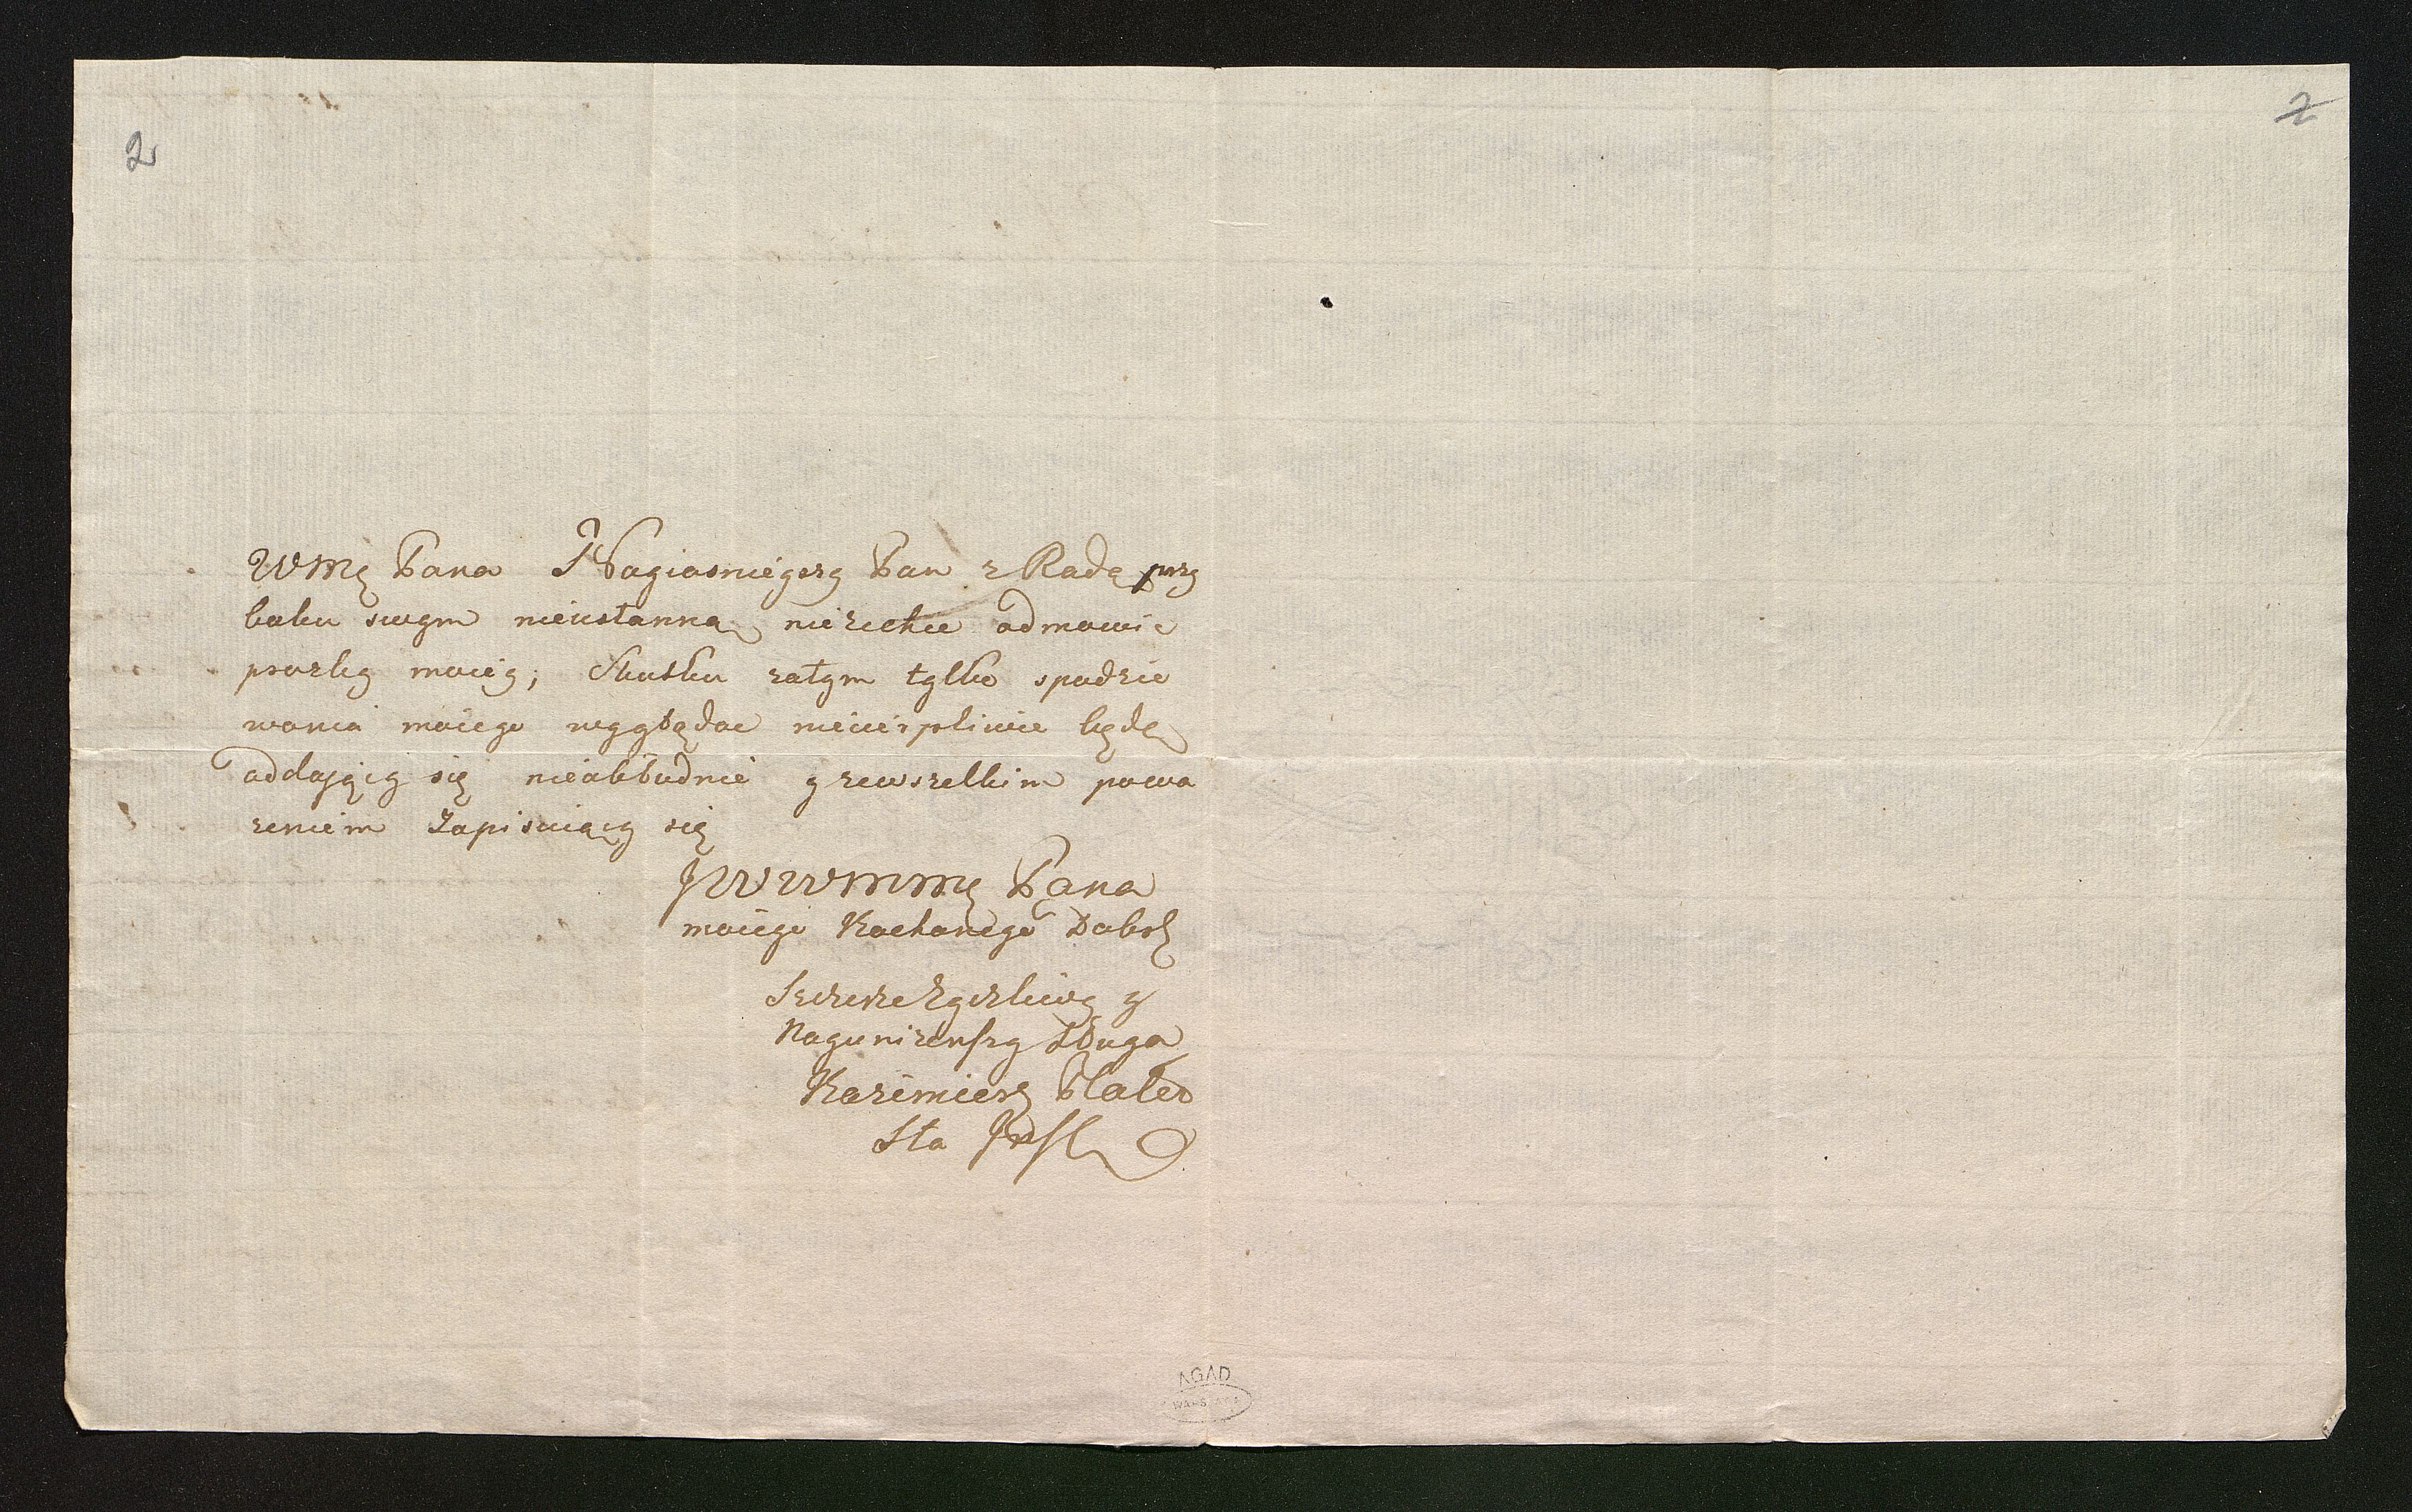 2
2
WMę Pana Nayiasnieyszy Pan z Radą przy
boku swym nieustanną niezechce odmowić
prozby moiey; Skutku zatym tylko spodzie
wania moiego wyglądać niecierpliwie będę
oddaiący się nieobłudnie y zewszelkim powa
zeniem zapisuiący się
JWWMMę Pana
moiego Kochanego Dobrz
Szczerze Zyczliwy y
Nayunizenszy Sługa
Kazimierz Plater
Sta Infl
AGAD
WARSZAWA